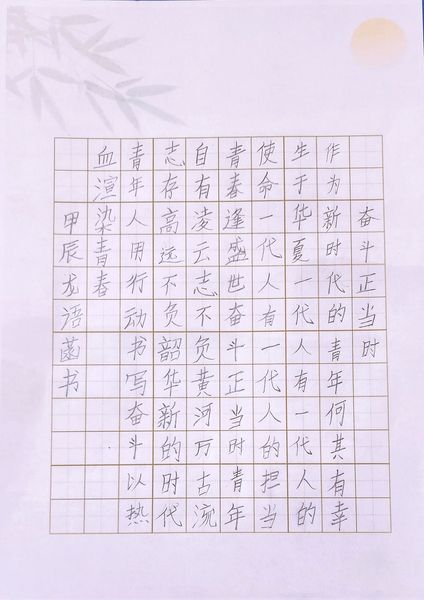 奋斗正当时
作为新时代的青年何其有幸
生于华夏一代人有一代人的
使命一代人有一代人的担当
青春逢盛世奋斗正当时青年
自有凌云志不负黄河万古流
志存高远不负韶华新的时代
青年人用行动书写奋斗以热
血渲染青春
甲辰龙语菡书